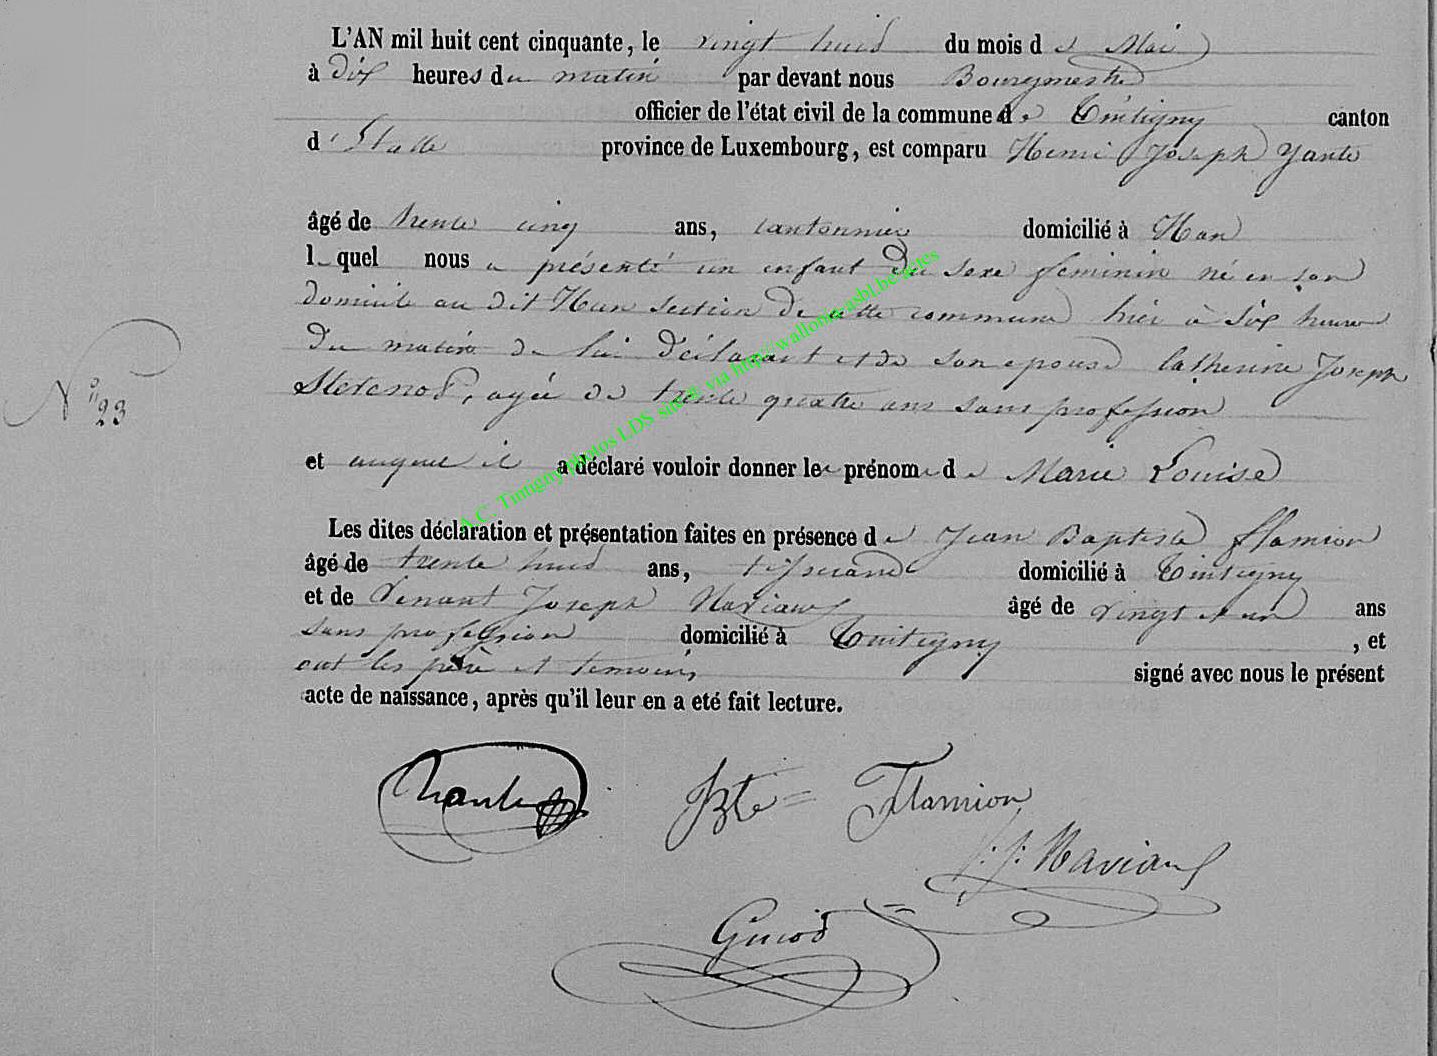 L'AN mil huit cent cinquante, le vingt huit du mois de Mai
à dix heures du matin par devant nous Bourgmestre
officier de l'état civil de la commune de Tintigny canton
d'Etalle province de Luxembourg, est comparu Henri Joseph Yante
âgé de trente cinq ans, cantonnier domicilié à Han
lequel nous a présenté un enfant du sexe feminin né en son
domicile au dit Han section de cette commune hier à six heures
du matin de lui déclarant et de son epouse Catherine Joseph
âgée de trente quatre ans sans profession
N° 23
et auquel il a déclaré vouloir donner les prénoms de Marie Louise
Les dites déclaration et présentation faites en présence de Jean Baptiste Flamion
âgé de trente huit ans, tisserand domicilié à Tintigny
et de Joseph Naviaux âgé de vingt et un ans
sans profession domicilié à Tintigny, et
ont les père et temoins signé avec nous le présent
acte de naissance, après qu'il leur en a eté fait lecture.
JBte Flamion
J. J. Naviaux
A.C. Tintigny photos LDS sur via http://wallonia-asbl.be/actes